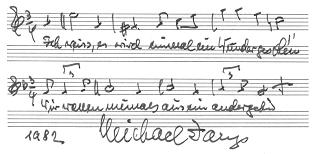 Ich weiss, es wird einmal ein Wunder geschehn
Wir wollen niemals auseinandergehn
1982 Michael Jary